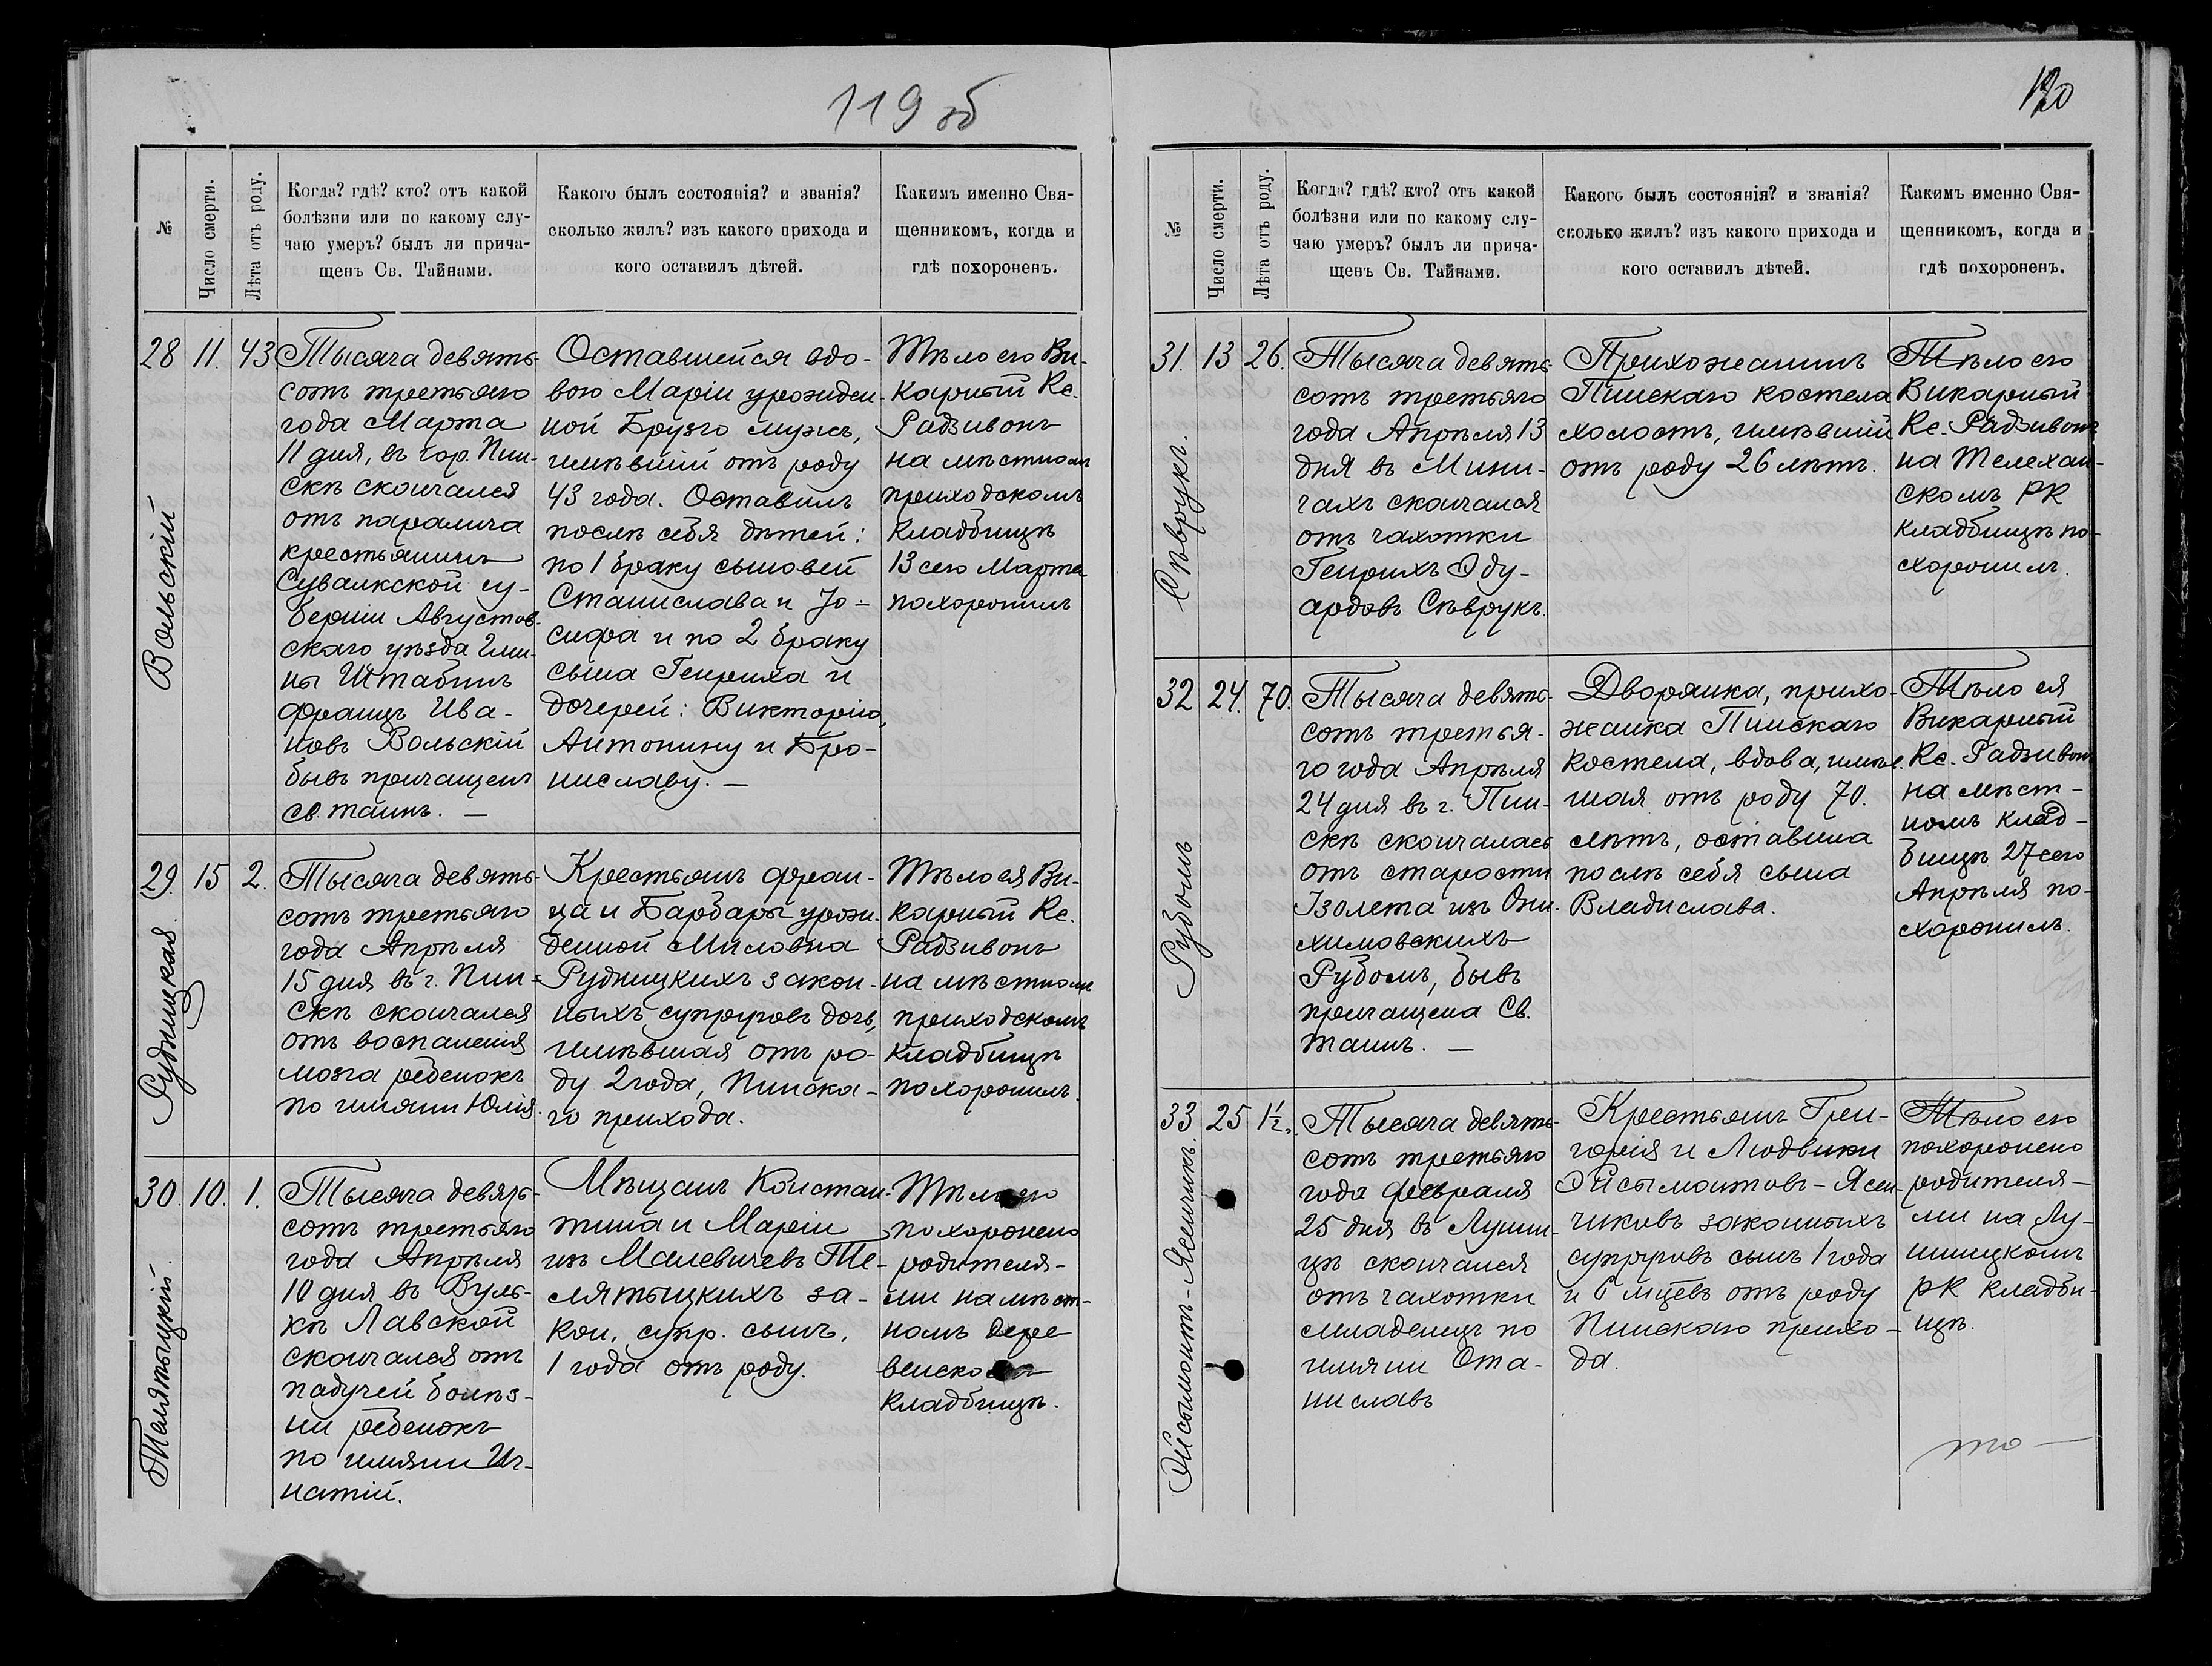 119 об
№
Число смерти.
Лѣта отъ роду.
Когда? гдѣ? кто? отъ какой
болѣзни или по какому слу-
чаю умеръ? былъ ли прича-
щенъ Св. Тайнами.
Какого былъ состоянія? и званія?
сколько жилъ? изъ какого прихода и
кого оставилъ дѣтей.
Какимъ именно Свя-
щенникомъ, когда и
гдѣ похороненъ.
Вольскій
28 11. 43
Тысяча девять-
сотъ третьяго
года Марта
11 дня, въ гор. Пин-
скѣ скончался
отъ паралича
крестьянинъ
Сувалкской гу-
берніи Августов-
скаго уѣзда Гми-
ны Штабинъ
Францъ Ива-
новъ Вольскій
бывъ причащенъ
св. таинъ. —
Оставшейся вдо-
вою Маріи урожден-
ной Брузго мужъ,
имѣвшій отъ роду
43 года. Оставилъ
послѣ себя дѣтей:
по 1 браку сыновей
Станислава и Іо-
сифа и по 2 браку
сына Генриха и
дочерей: Викторію,
Антонину и Бро-
ниславу. —
Тѣло его Ви-
карный Кс.
Радзивонъ
на мѣстномъ
приходскомъ
кладбищѣ
13 сего Марта
похоронилъ
Рудницкая
29. 15 2.
Тысяча девять-
сотъ третьяго
года Апрѣля
15 дня въ г. Пин-
скѣ скончался
отъ воспаленія
мозга ребенокъ
по имяни Юлія.
Крестьянъ Фран-
ца и Барбары урож-
денной Миловна
Рудницкихъ закон-
ныхъ супруговъ дочь,
имѣвшая отъ ро-
ду 2 года, Пинска-
го прихода.
Тѣло ея Ви-
карный Кс.
Радзивонъ
на мѣстномъ
приходскомъ
кладбищѣ
похоронилъ.
Телятыцкій.
30. 10. 1.
Тысяча девять-
сотъ третьяго
года Апрѣля
10 дня въ Вуль-
кѣ Лавской
скончался отъ
падучей болѣз-
ни ребенокъ
по имяни Иг-
натій.
Мѣщанъ Констан-
тина и Маріи
изъ Малевичевъ Те-
лятыцкихъ за-
кон. супр. сынъ,
1 года отъ роду.
Тѣло его
похоронено
родителя-
ми на мѣст-
номъ дере
венском
кладбищѣ.
120
№
Число смерти.
Лѣта отъ роду.
Когда? гдѣ? кто? отъ какой
болѣзни или по какому слу-
чаю умеръ? былъ ли прича-
щенъ Св. Тайнами.
Какого былъ состоянія? и званія?
сколько жилъ? изъ какого прихода и
кого оставилъ дѣтей.
Какимъ именно Свя-
щенникомъ, когда и
гдѣ похороненъ.
Сѣврукъ.
31. 13 26.
Тысяча девять-
сотъ третьяго
года Апрѣля 13
дня въ Мини-
чахъ скончался
отъ чахотки
Генрихъ Эду-
ардовъ Сѣврукъ.
Прихожанинъ
Пинскаго костела
холостъ, имѣвшій
отъ роду 26 лѣтъ.
Тѣло его
Викарный
Кс. Радзивонъ
на Телехан-
скомъ РК
кладбищѣ по-
хоронилъ.
Рубомъ
32 24. 70.
Тысяча девять-
сотъ третья-
го года Апрѣля
24 дня въ г. Пин-
скѣ скончалась
отъ старости
Изолета изъ Они-
химовскихъ
Рубомъ, бывъ
причащена Св.
Таинъ. —
Дворянка, прихо-
жанка Пинскаго
костела, вдова, имѣв.
шая отъ роду 70.
лѣтъ, оставила
послѣ себя сына
Владислава.
Тѣло ея
Викарный
Кс. Радзивонъ
на мѣст-
номъ клад-
бищѣ 27 сего
Апрѣля по-
хоронилъ.
Эйсымонтъ-Ясенчикъ.
33 25 1½.
Тысяча девять-
сотъ третьяго
года февраля
25 дня въ Лунин-
цѣ скончался
отъ чахотки
младенецъ по
имяни Ста-
ниславъ
Крестьянъ Гри-
горія и Людвики
Эйсымонтовъ-Ясен-
чиковъ законныхъ
супруговъ сынъ 1 года
и 6 мцевъ отъ роду
Пинскаго прихо-
да.
Тѣло его
похоронено
родителя-
ми на Лу-
нинцкомъ
РК кладби-
щѣ.
то —